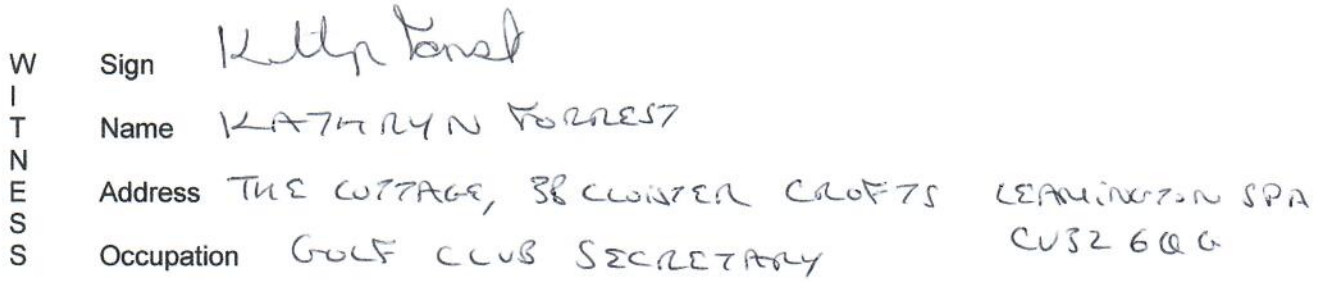 WITNESS
Sign
Name KATHRYN FORREST
Address THE COTTAGE, 38 CLOISTER CROFTS LEAMINGTON SPA
CV32 6QG
Occupation GOLF CLUB SECRETARY